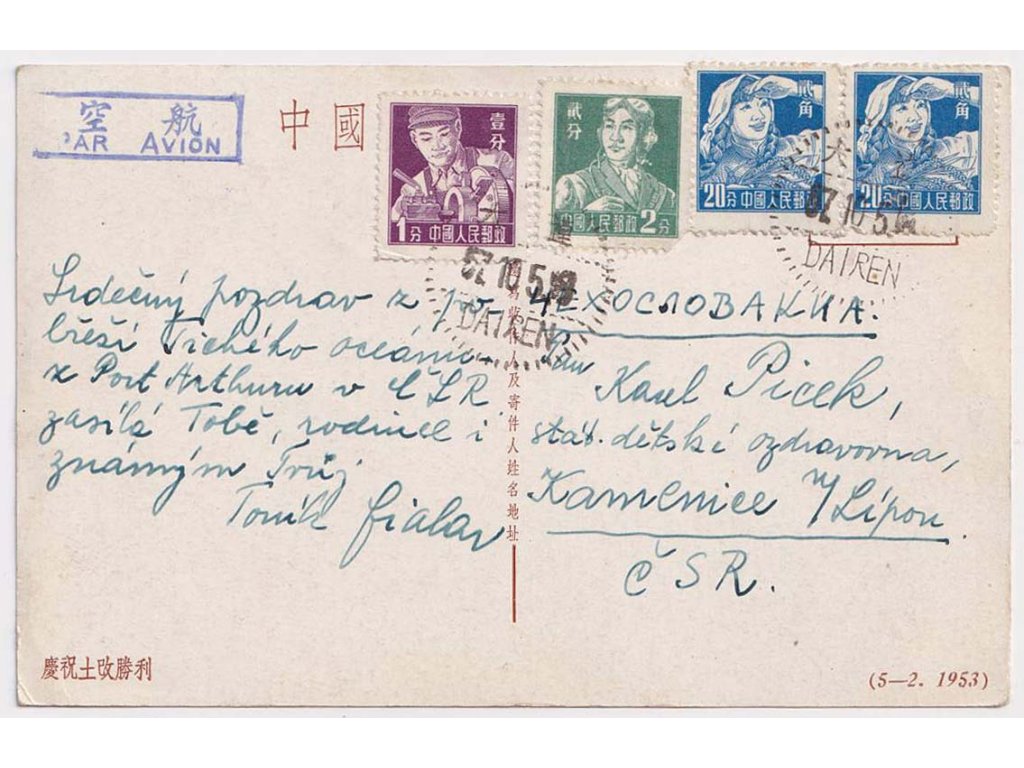 空 航
PAR AVION
中國
壹分
1分 中國人民郵政
貳分
中國人民郵政 2分
貳角
20分 中國人民郵政
貳角
20分 中國人民郵政
57.10.5
DAIREN
57.10.5
DAIREN
Srdečný pozdrav z po-
břeží Tichého oceánu
z Port Arthuru v ČLR
zasílá Tobě, rodince i
známým Tvůj
Toník Fialav
人及寄件人姓名地址
ЧЕХОСЛОВАКИА.
Pan
Karel Picek,
stát. dětská ozdravovna,
Kamenice n/Lípou
ČSR.
慶祝土改勝利
(5—2. 1953)